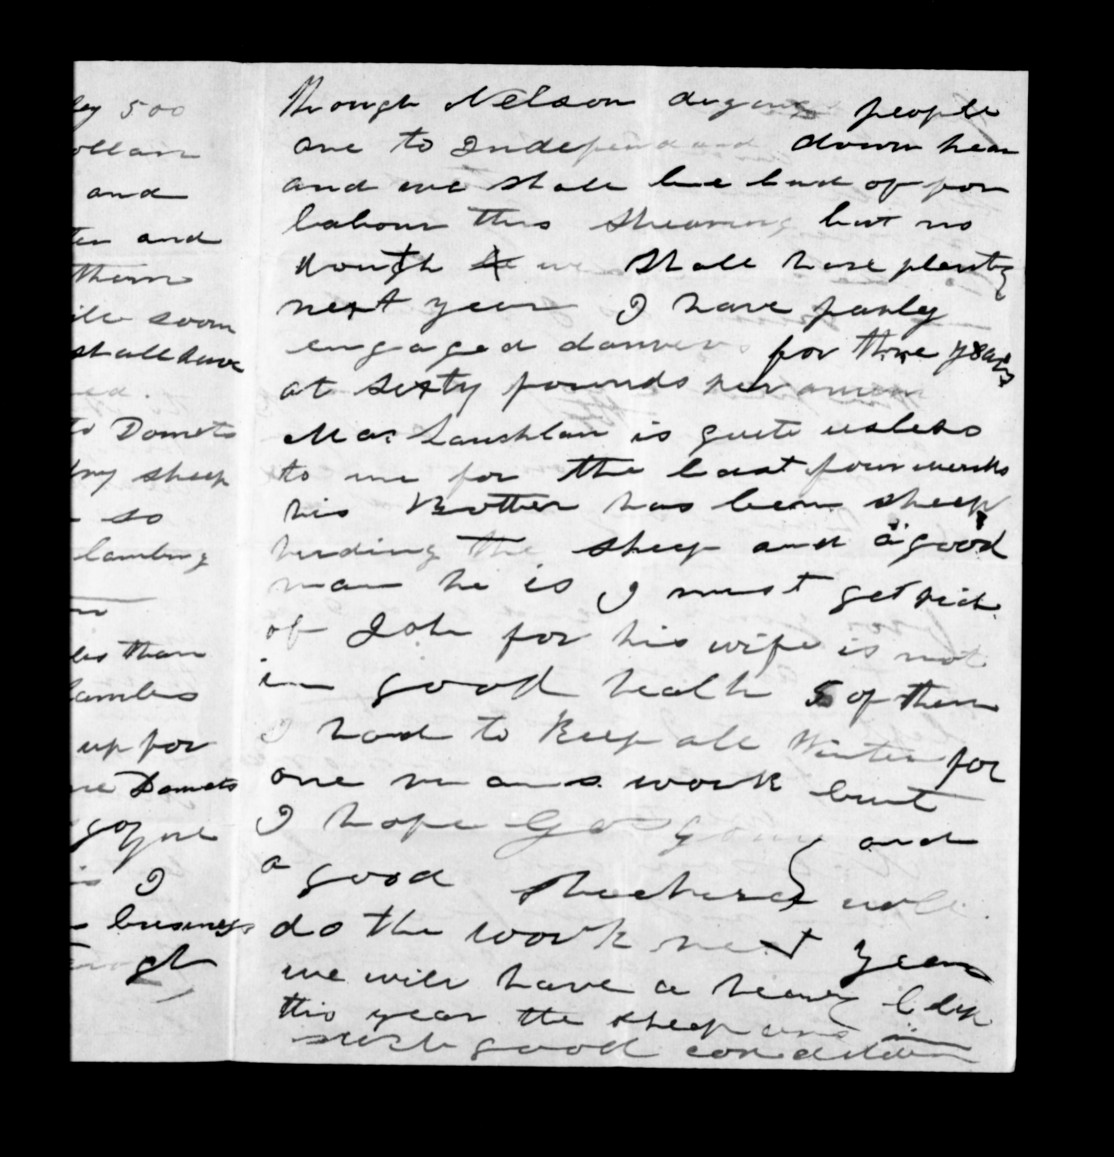 ley 500
ollam
and
ter and
them
ile soon
shall have
ed.
to Domets
dry sheep
so
lambing
les than
lambs
up for
Domets
go
is I
business
through Nelson people
are to Independand down hear
and we shall be bad of for
labour this shearing but no
douth we shall have plenty
next year I have parly
engaged for three years
at sixty pounds per
MacLauchlan is quite usless
to me for the last four weeks
his Brother has been sheep
hirding the sheep and a good
man he is I must get rid
of Joh for his wife is not
in good health 5 of them
I had to keep all Winter for
one mans work but
I hope and
a good will
do the work next year
we will have a heavy Clip
this year the sheep are in
such good condition